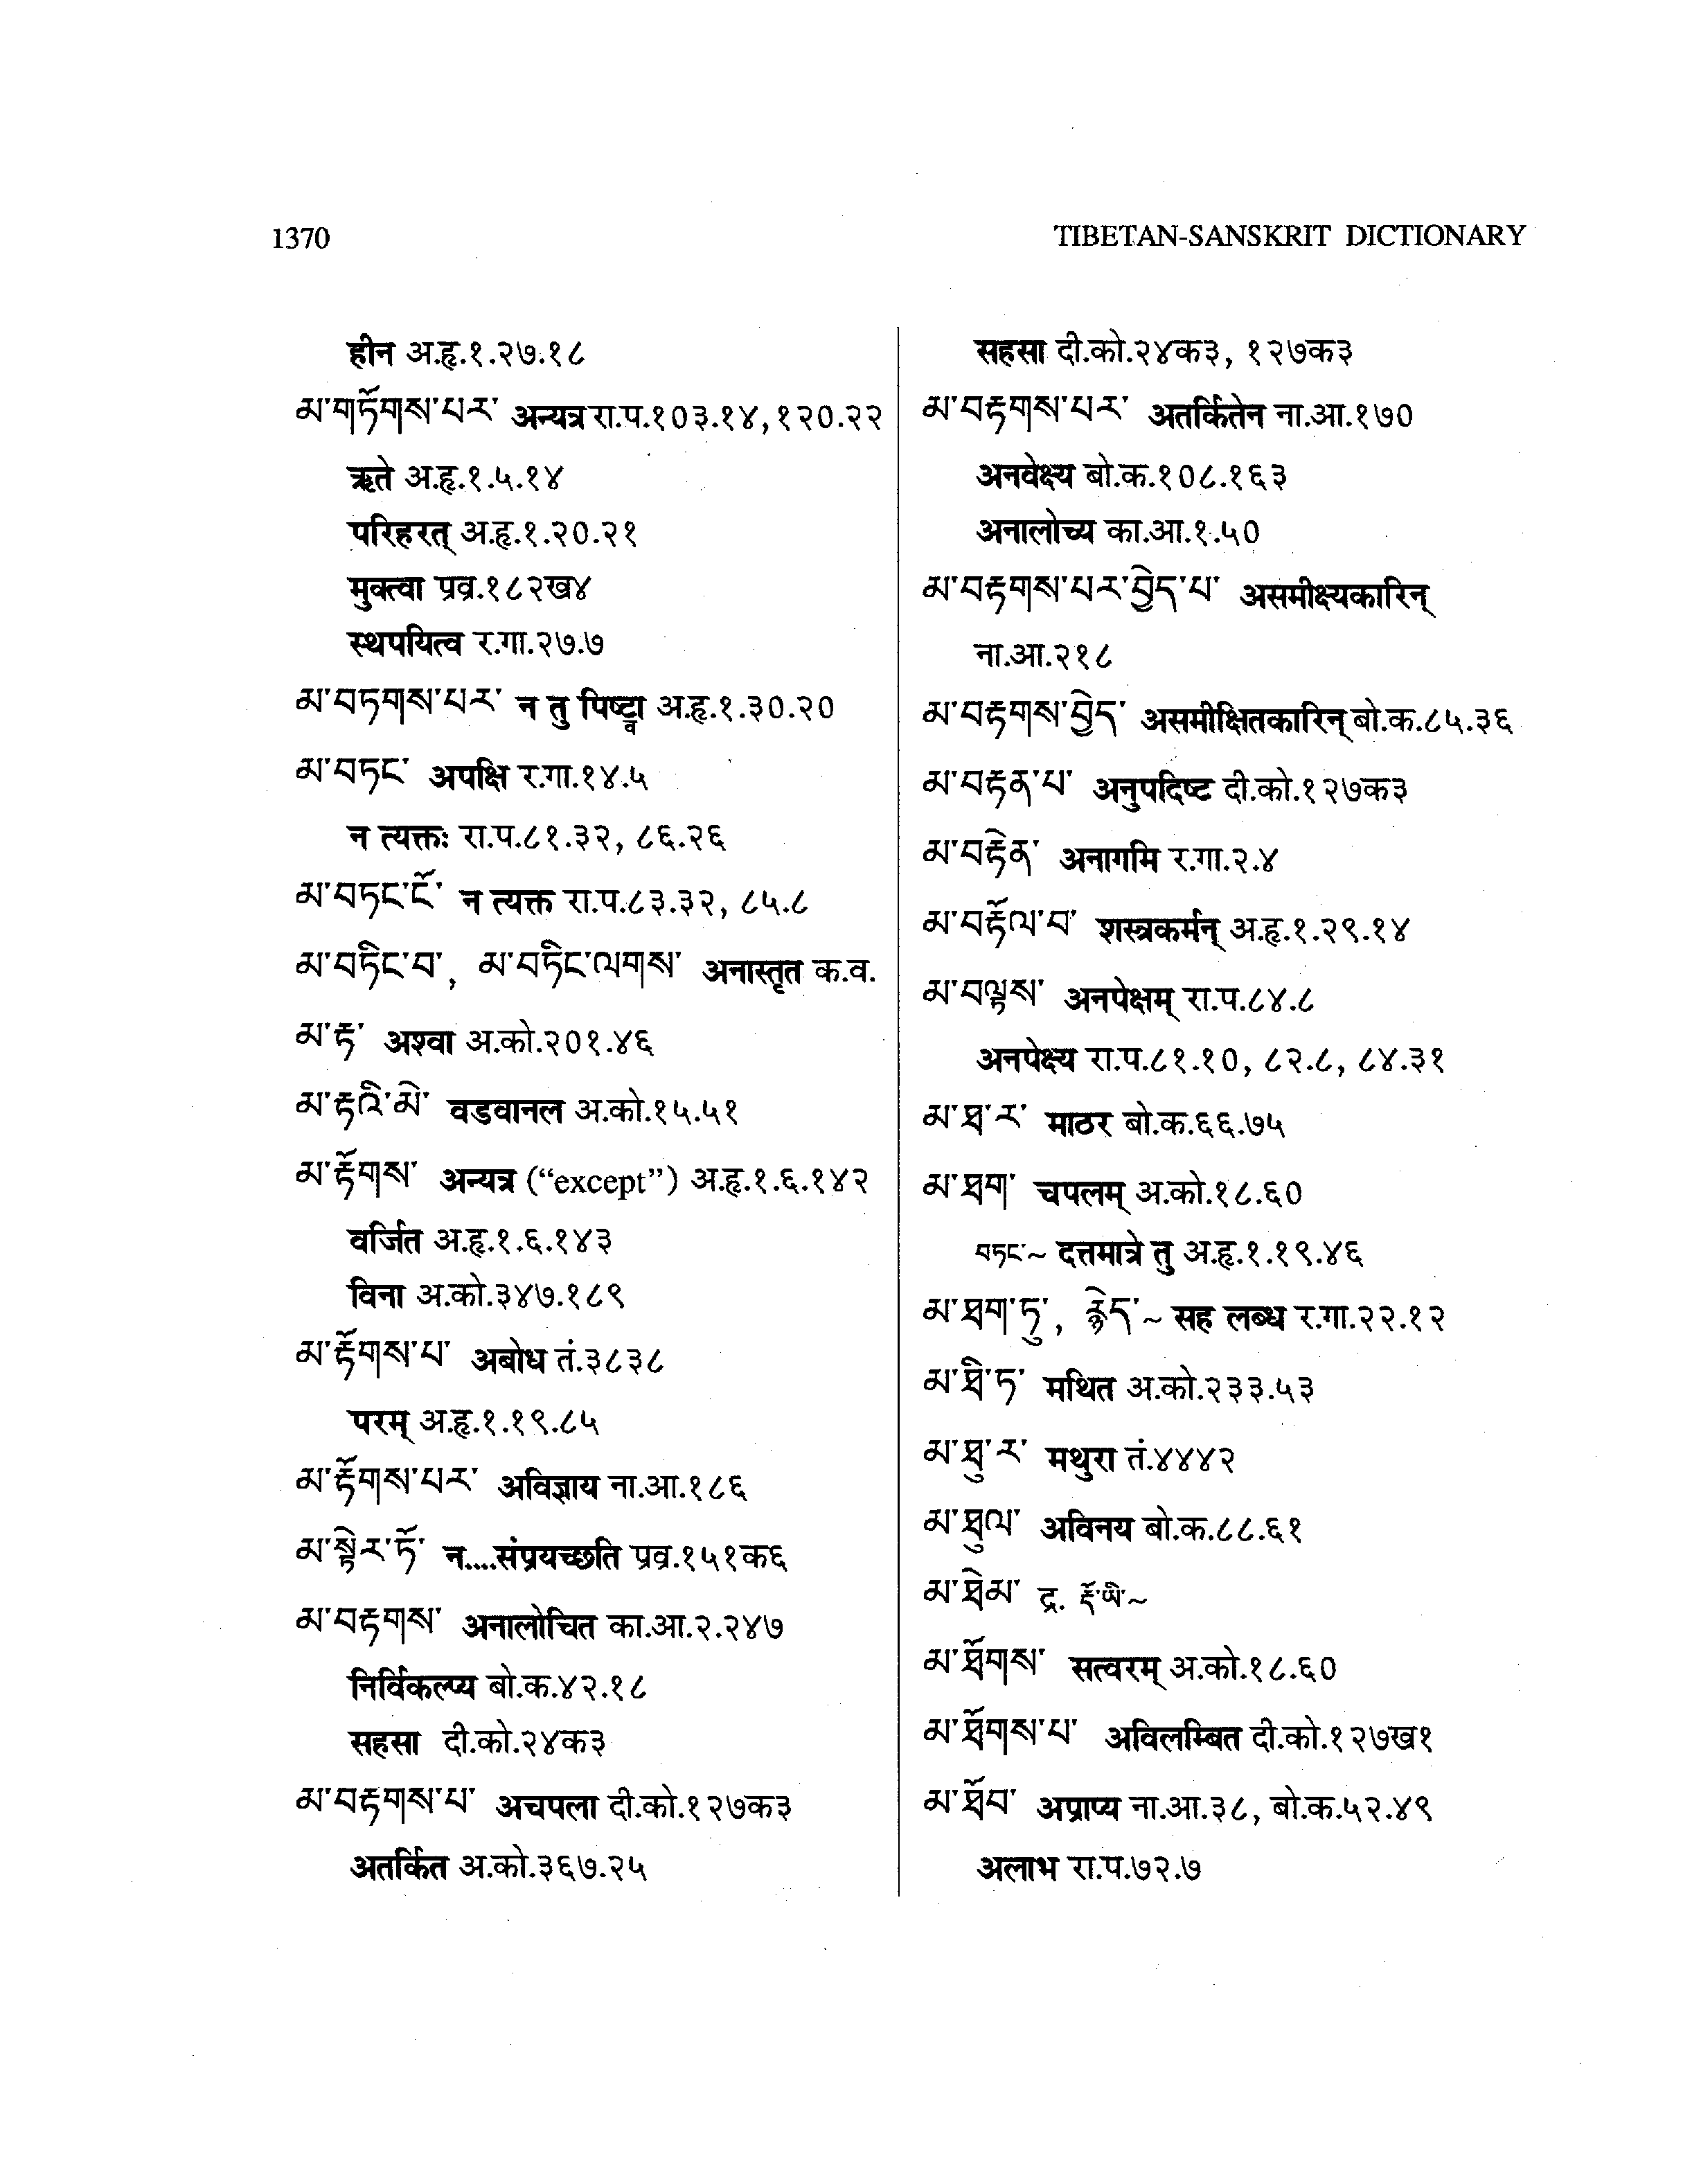 1370
TIBETAN-SANSKRIT DICTIONARY
हीन अ.हृ.१.२७.१८
མ་གཏོགས་པར་ अन्यत्र रा.प.१०३.१४, १२०.२२
ऋते अ.हृ.१.५.१४
परिहरत् अ.हृ.१.२०.२१
मुक्त्वा प्रव्र.१८२ख४
स्थपयित्व र.गा.२७.७
མ་བཏགས་པར་ न तु पिष्ट्वा अ.हृ.१.३०.२०
མ་བཏང་ अपक्षि र.गा.१४.५
न त्यक्तः रा.प.८१.३२, ८६.२६
མ་བཏང་ངོ་ न त्यक्त रा.प.८३.३२, ८५.८
མ་བཏིང་བ་, མ་བཏིང་ལགས་ अनास्तृत क.व.
མ་རྟ་ अश्वा अ.को.२०१.४६
མ་རྟའི་མེ་ वडवानल अ.को.१५.५१
མ་རྟོགས་ अन्यत्र (“except”) अ.हृ.१.६.१४२
वर्जित अ.हृ.१.६.१४३
विना अ.को.३४७.१८९
མ་རྟོགས་པ་ अबोध तं.३८३८
परम् अ.हृ.१.१९.८५
མ་རྟོགས་པར་ अविज्ञाय ना.आ.१८६
མ་སྟེར་ཏོ་ न....संप्रयच्छति प्रव्र.१५१क६
མ་བརྟགས་ अनालोचित का.आ.२.२४७
निर्विकल्प्य बो.क.४२.१८
सहसा दी.को.२४क३
མ་བརྟགས་པ་ अचपला दी.को.१२७क३
अतर्कित अ.को.३६७.२५
सहसा दी.को.२४क३, १२७क३
མ་བརྟགས་པར་ अतर्कितेन ना.आ.१७०
अनवेक्ष्य बो.क.१०८.१६३
अनालोच्य का.आ.१.५०
མ་བརྟགས་པར་བྱེད་པ་ असमीक्ष्यकारिन्
ना.आ.२१८
མ་བརྟགས་བྱེད་ असमीक्षितकारिन् बो.क.८५.३६
མ་བརྟན་པ་ अनुपदिष्ट दी.को.१२७क३
མ་བརྟེན་ अनागमि र.गा.२.४
མ་བརྟོལ་བ་ शस्त्रकर्मन् अ.हृ.१.२९.१४
མ་བལྟས་ अनपेक्षम् रा.प.८४.८
अनपेक्ष्य रा.प.८१.१०, ८२.८, ८४.३१
མ་ཐ་ར་ माठर बो.क.६६.७५
མ་ཐག་ चपलम् अ.को.१८.६०
བཏང་~ दत्तमात्रे तु अ.हृ.१.१९.४६
མ་ཐག་ཏུ་, རྙེད་~ सह लब्ध र.गा.२२.१२
མ་ཐི་ཏ་ मथित अ.को.२३३.५३
མ་ཐུ་ར་ मथुरा तं.४४४२
མ་ཐུལ་ अविनय बो.क.८८.६१
མ་ཐེམ་ द्र. རྡོ་ཡི་~
མ་ཐོགས་ सत्वरम् अ.को.१८.६०
མ་ཐོགས་པ་ अविलम्बित दी.को.१२७ख१
མ་ཐོབ་ अप्राप्य ना.आ.३८, बो.क.५२.४९
अलाभ रा.प.७२.७